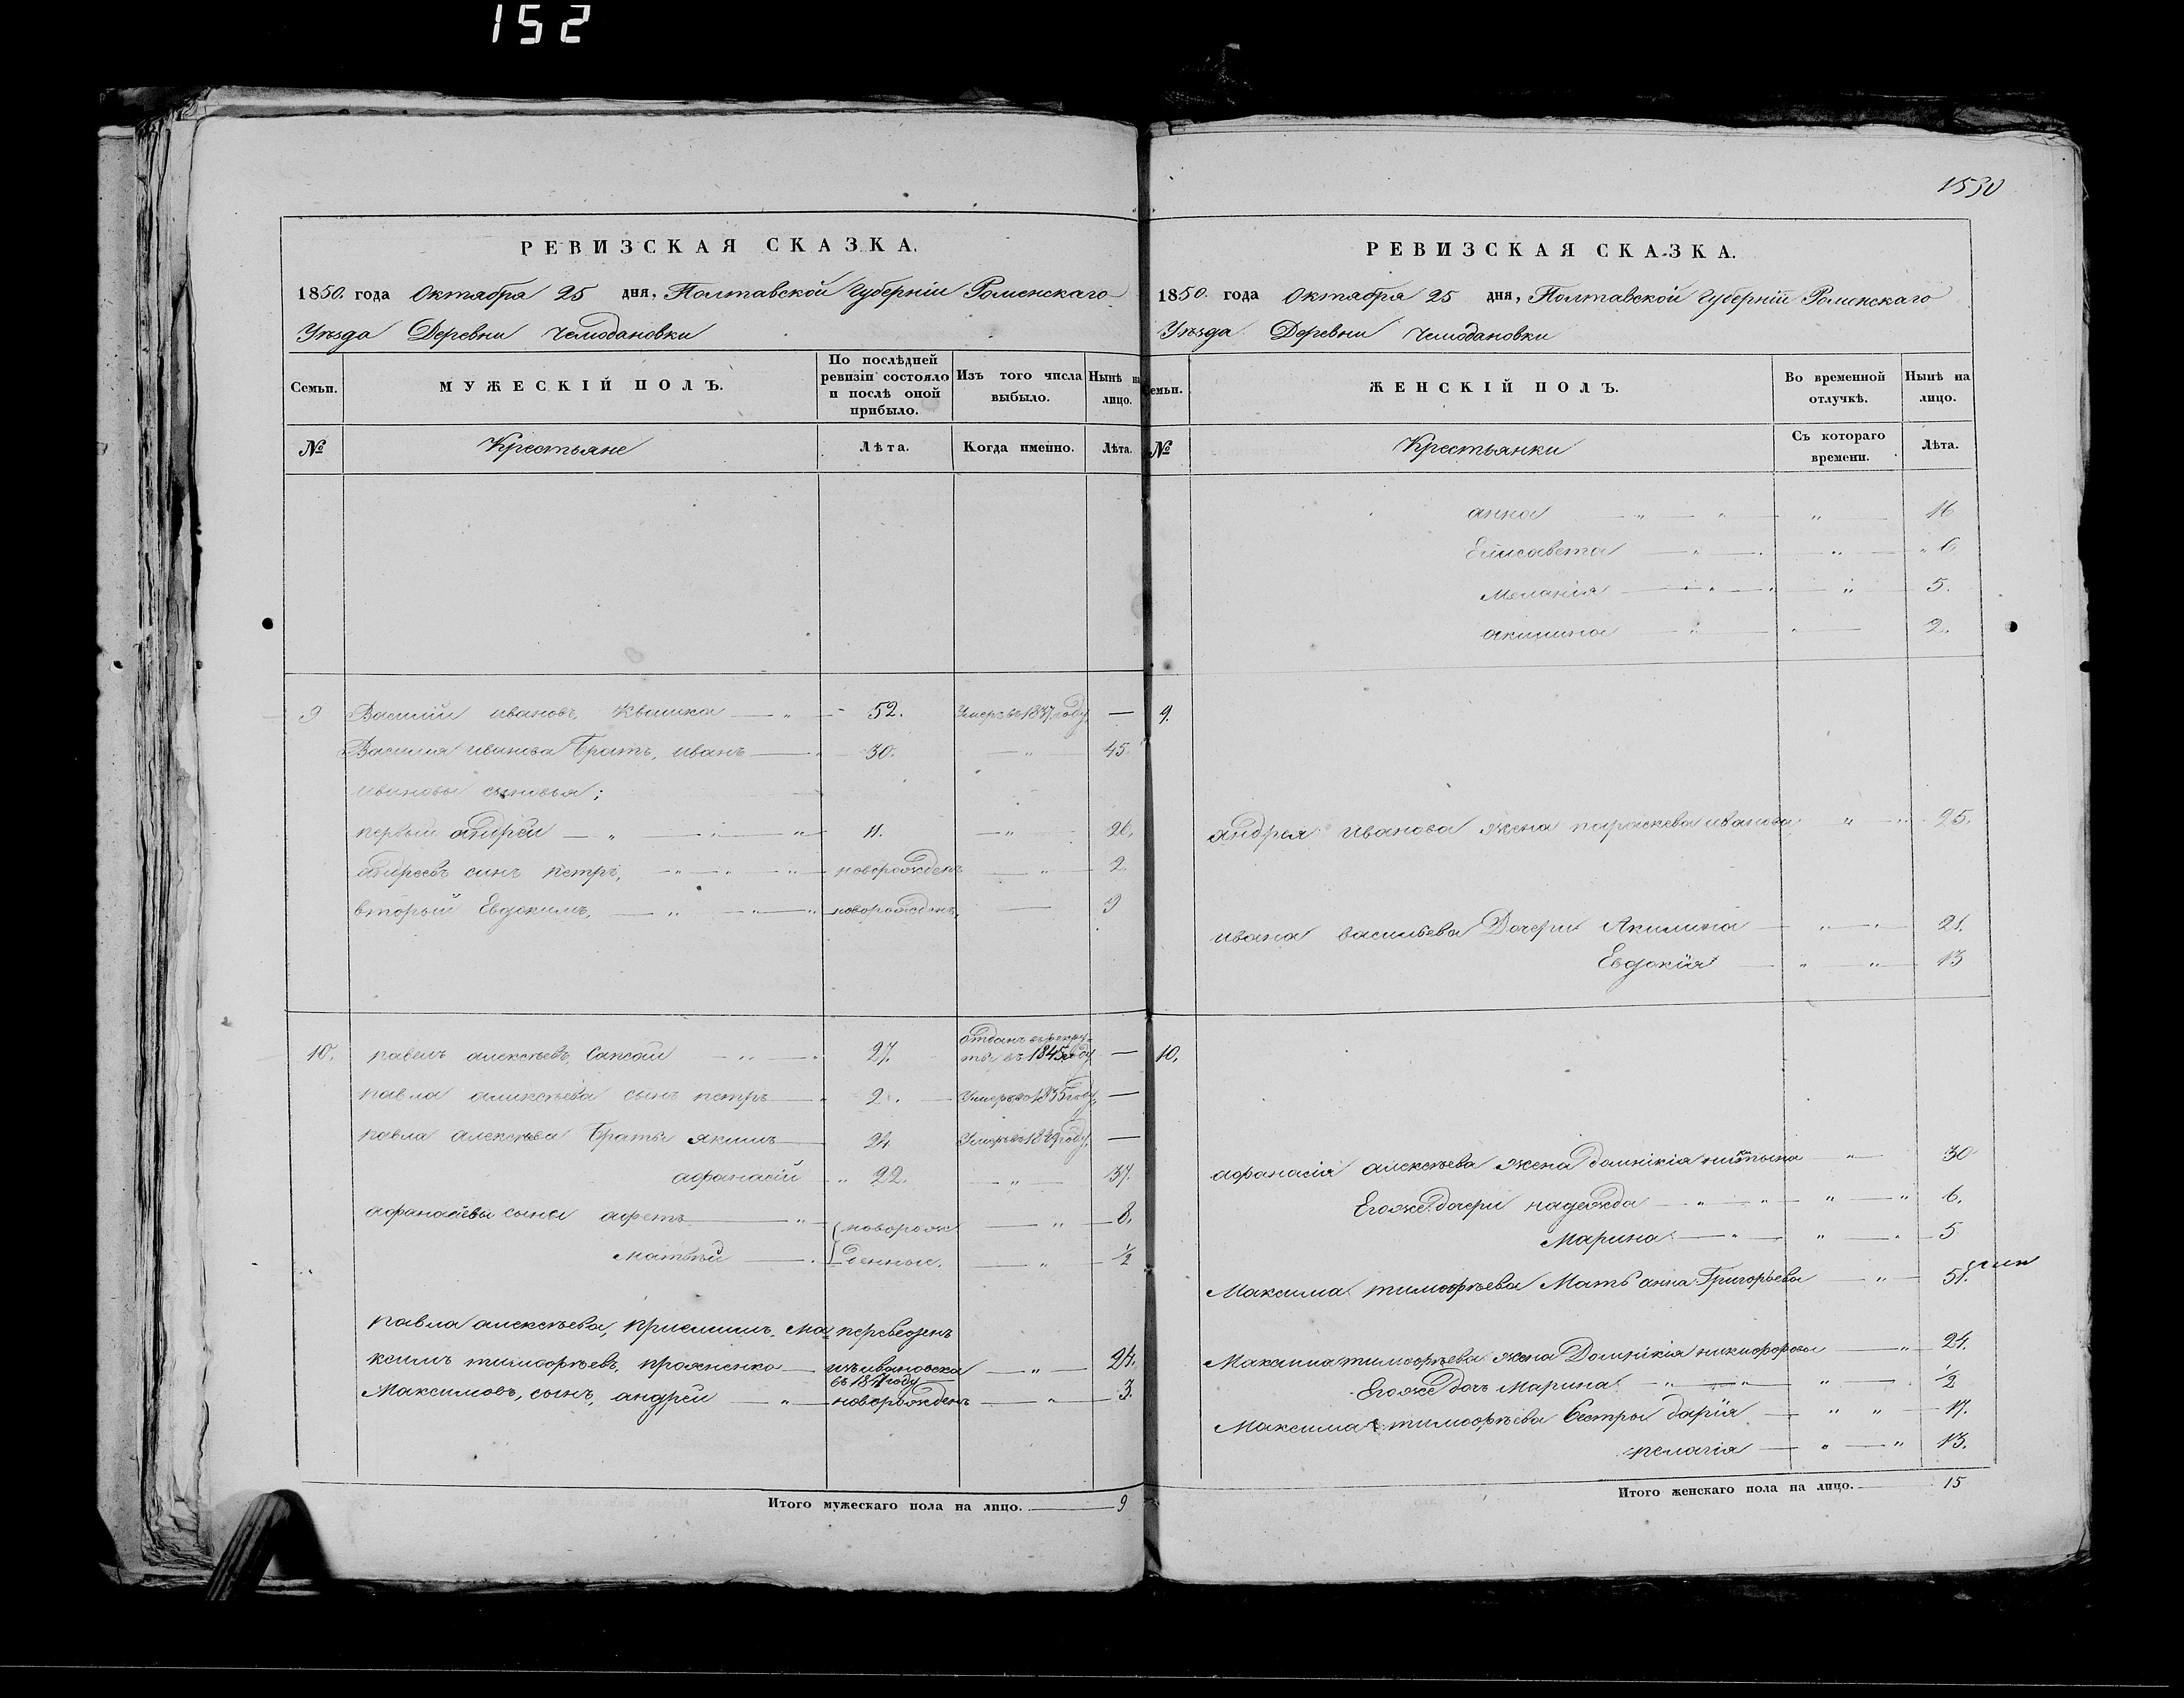 152
РЕВИЗСКАЯ СКАЗКА.
1850. года Октября 25 дня, Полтавской Губерніи Роменскаго
Уѣзда Деревни Чемодановки
Семьи. МУЖЕСКІЙ ПОЛЪ. По послѣдней ревизіи состояло и послѣ оной прибыло. Изъ того числа выбыло. Нынѣ на лицо.
№ Крестьяне Лѣта. Когда именно. Лѣта.
9 Василій ивановъ, Квашка — „ — 52. Умеръ въ 1837 году —
Василія иванова Братъ, иванъ — „ 30. — „ — 45.
ивановы сыновья;
первый андрей — „ — „ — „ 11. — „ — 26.
андреевъ сынъ петръ, — „ — „ — „ новорожденъ — „ — 2
второй Евдокимъ, — „ — „ — „ новорожденъ, — 9
10. павелъ алексѣевъ, Сапсай — „ — „ 27. отданъ въ рекруты въ 1845 году —
павла алексѣева сынъ петръ — „ 2. — Умеръ въ 1835 году, —
павла алексѣева Братья якимъ — 24 Умеръ въ 1849 году, —
афанасій „ 22. — „ — 37.
афанасіевы сыны афетъ — „ — новорож — „ — 8.
матвѣй — „ денные. — „ — ½
павла алексѣева, приемышъ, Ма переведенъ
ксимъ тимофѣевъ, прожненко — изъ ивановска — „ — 24.
въ 1847 году
Максимовъ, сынъ, андрей — „ — новорожденъ — „ — 3.
Итого мужескаго пола на лицо. — 9
1550
РЕВИЗСКАЯ СКАЗКА.
1850. года Октября 25 дня, Полтавской Губерніи Роменскаго
Уѣзда Деревни Чемодановки
Семьи. ЖЕНСКІЙ ПОЛЪ. Во временной отлучкѣ. Нынѣ на лицо.
№ Крестьянки Съ котораго времени. Лѣта.
анна — „ — „ — „ — 16
Елисавета — „ — „ — „ 6
Меланія — „ — „ — „ — 5.
акилина — „ — „ — 2.
9.
андрея иванова жена параскева иванова „ — „ 25.
ивана васильева Дочери Акилина — „ — „ — 21.
Евдокія — „ — „ — 13
10.
афанасія алексѣева жена домнікія — „ — 30
Егожъ дочери надежда — „ — „ — „ — „ 6.
Марина — „ — „ — „ — 5
Максима тимофѣева Мать анна Григорьева — „ — 51.
Максима тимофѣева жена Домнікія никифорова — „ — 24.
Егожъ дочь Марина — „ — „ — „ — ½
Максима тимофѣева Сестры дарія — „ „ — 17.
пелагія — „ — „ — 13.
Итого женскаго пола на лицо. — 15